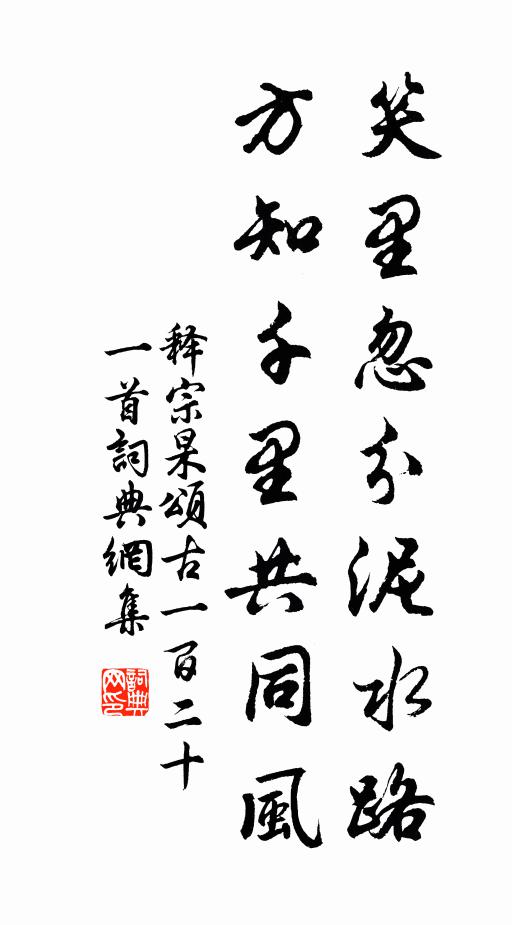 笑里忽分泥水路
方知千里共同風
释宗杲頌古一百二十
一首詞典網集
詞典网印